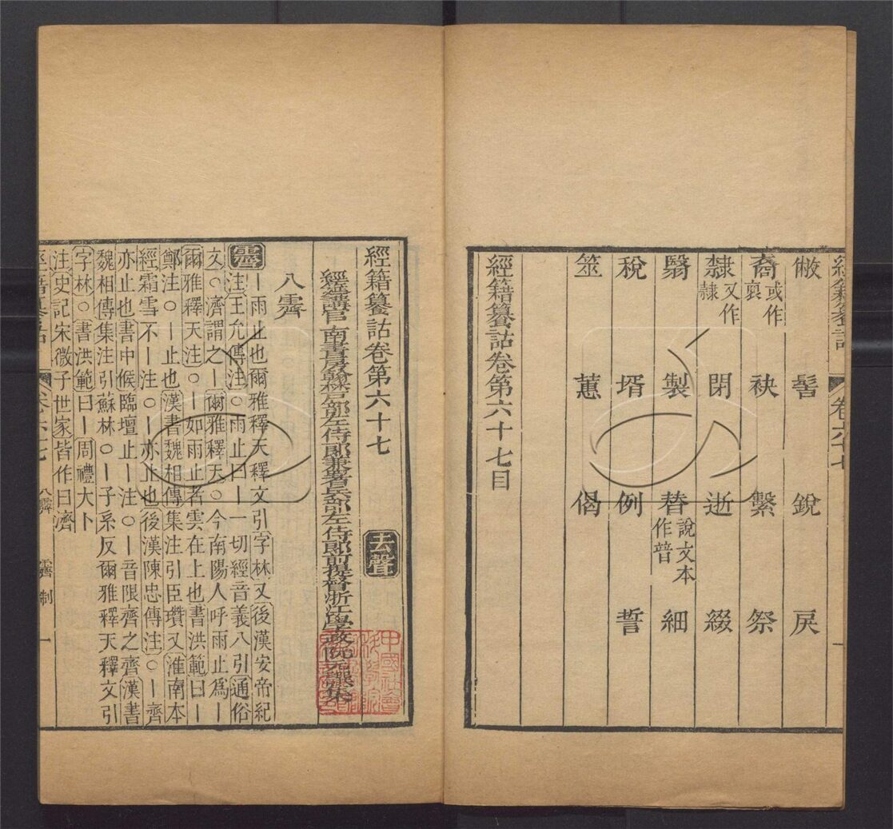 經籍籑詁 卷六十七
倣 髻 銳 戾
裔 或作 袂 繫 祭
裛
隸 又作 閉 逝 綴
隷
翳 製 替 說文本 細
作普
稅 壻 例 誓
筮 蕙 偈
經籍籑詁卷第六十七目
經籍籑詁卷第六十七 去聲
經筵講官南書房翰林戶部左侍郎兼署兵部左侍郎前提督浙江學政阮元譔集
八霽
霽 ｜雨止也爾雅釋天釋文引字林又後漢安帝紀
注王允傳注○雨止曰｜一切經音義八引通俗
文○濟謂之｜爾雅釋天○今南陽人呼雨止爲｜
爾雅釋天注○｜如雨止者雲在上也書洪範曰｜
鄭注○｜止也漢書魏相傳集注引臣瓚又淮南本
經霜雪不｜注○｜亦止也後漢陳忠傳注○｜齊
亦止也書中候臨壇止｜注○｜音限齊之齊漢書
魏相傳集注引蘇林○｜子系反爾雅釋天釋文引
字林○書洪範曰｜周禮大卜
注史記宋微子世家皆作曰濟
經籍籑詁 卷六十七 八霽 霽 制 一